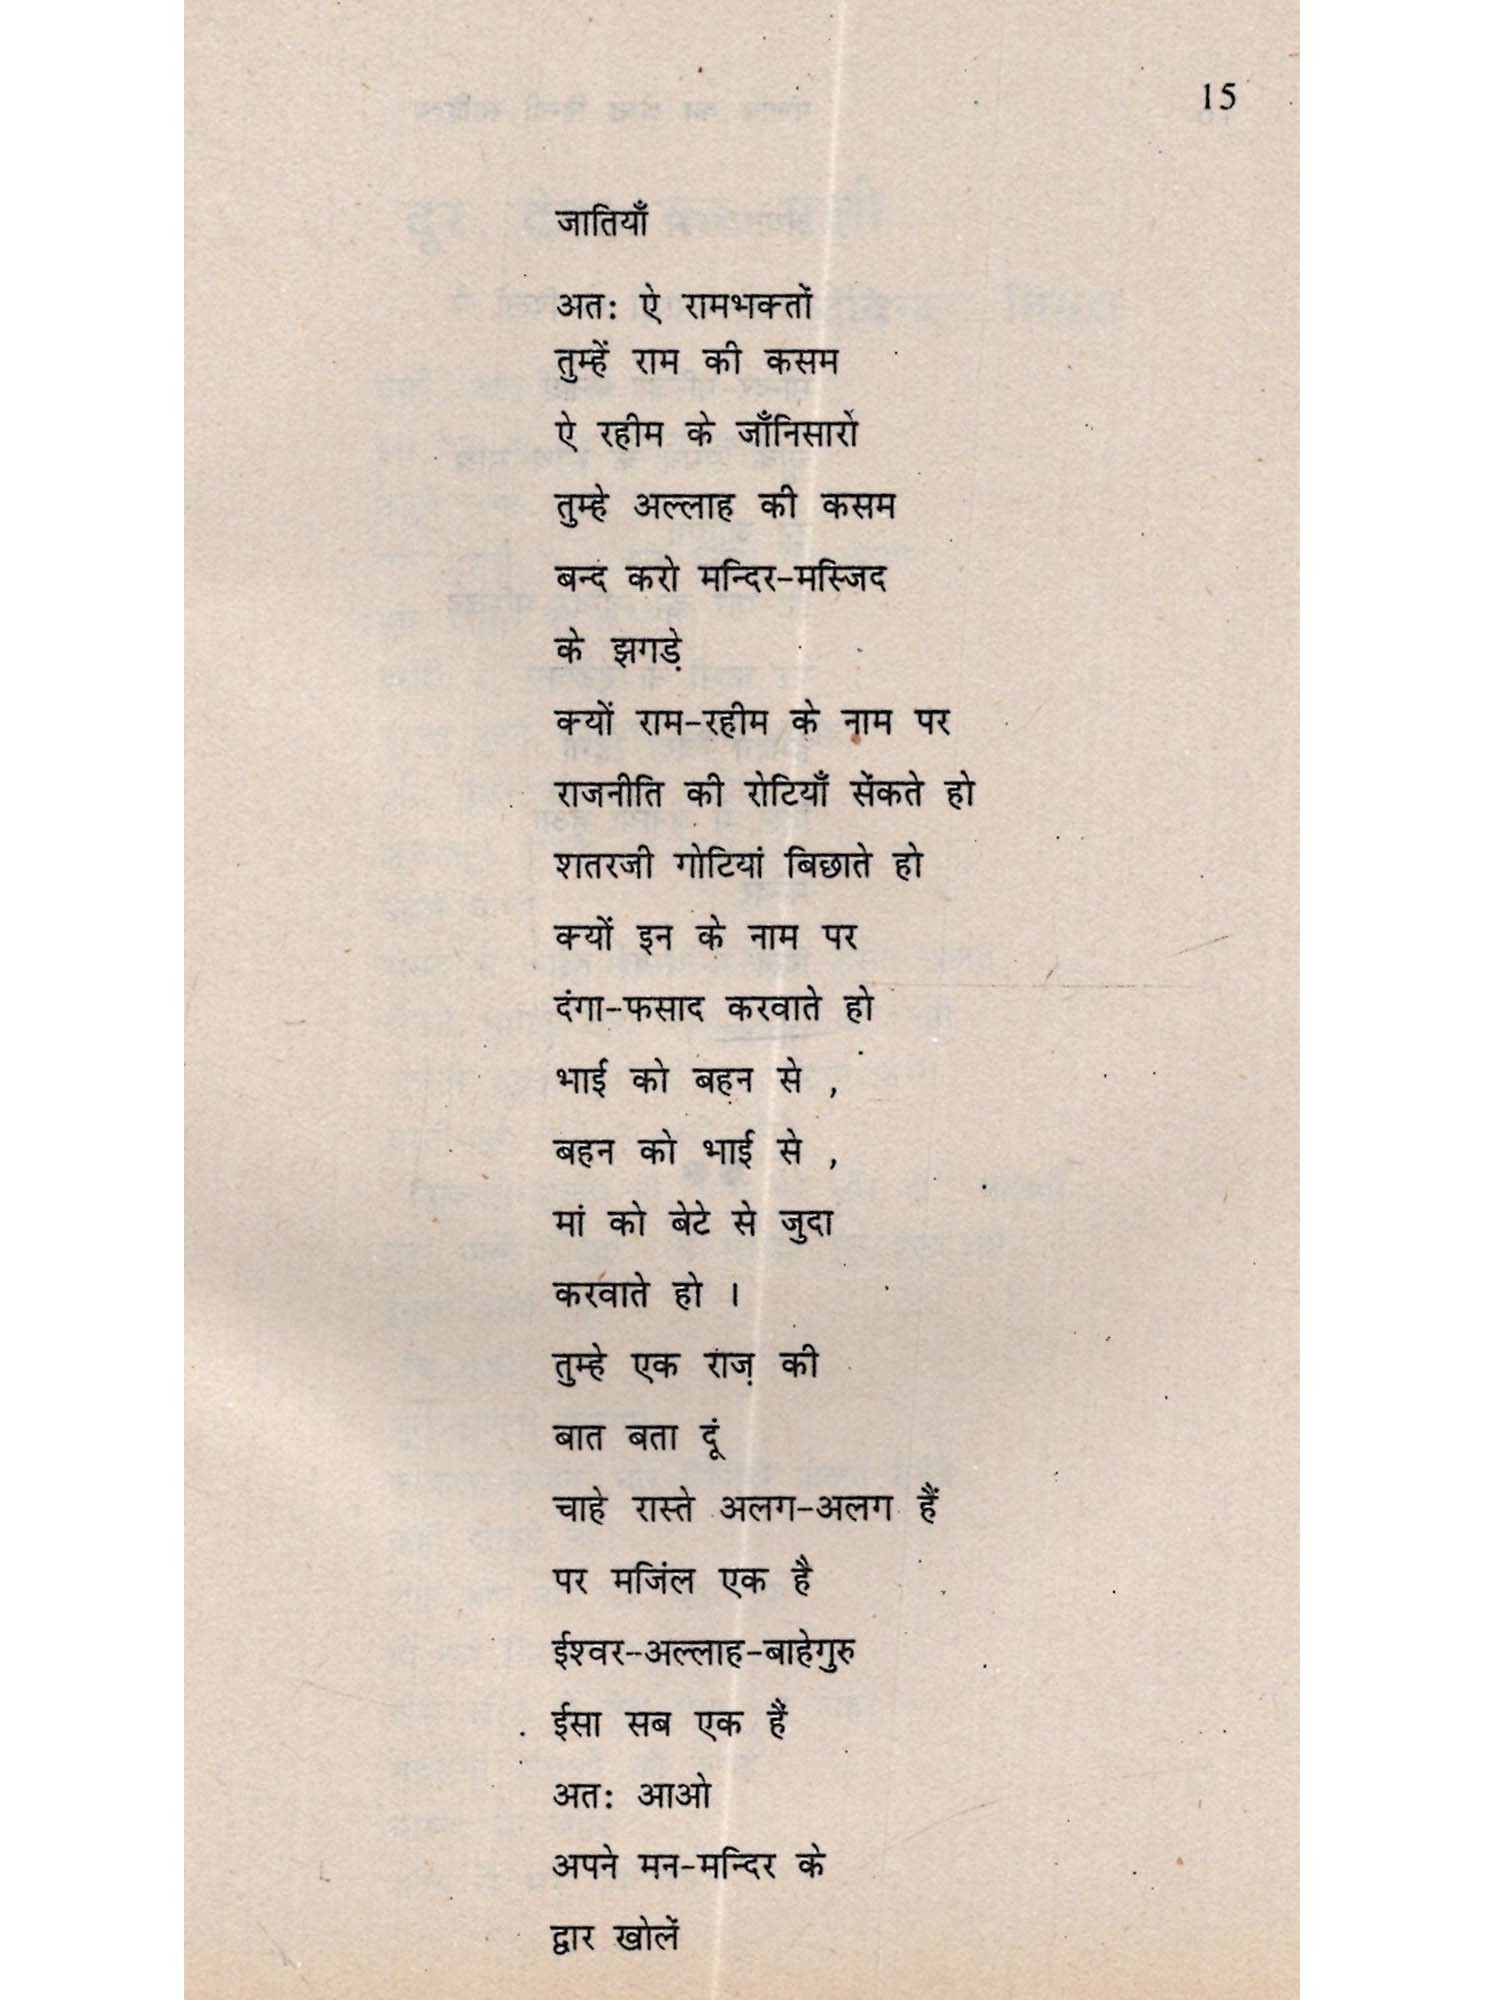 15
जातियाँ
अतः ऐ रामभक्तों
तुम्हें राम की कसम
ऐ रहीम के जाँनिसारों
तुम्हे अल्लाह की कसम
बन्द करो मन्दिर-मस्जिद
के झगड़े
क्यों राम-रहीम के नाम पर
राजनीति की रोटियाँ सेंकते हो
शतरजी गोटियां बिछाते हो
क्यों इन के नाम पर
दंगा-फसाद करवाते हो
भाई को बहन से ,
बहन को भाई से ,
मां को बेटे से जुदा
करवाते हो ।
तुम्हे एक राज़ की
बात बता दूं
चाहे रास्ते अलग-अलग हैं
पर मजिंल एक है
ईश्वर-अल्लाह-बाहेगुरु
ईसा सब एक हैं
अतः आओ
अपने मन-मन्दिर के
द्वार खोलें